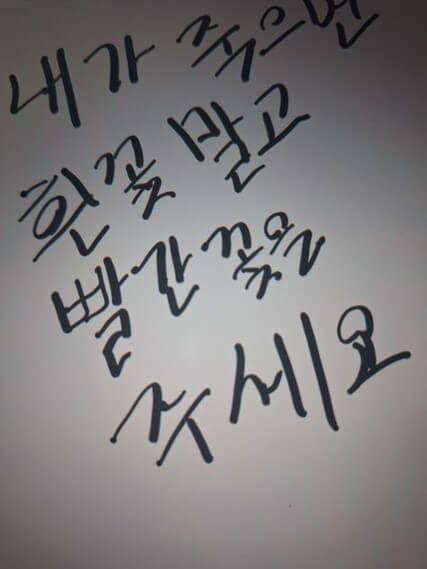 내가 죽으면
흰 꽃 말고
빨간 꽃을
주세요